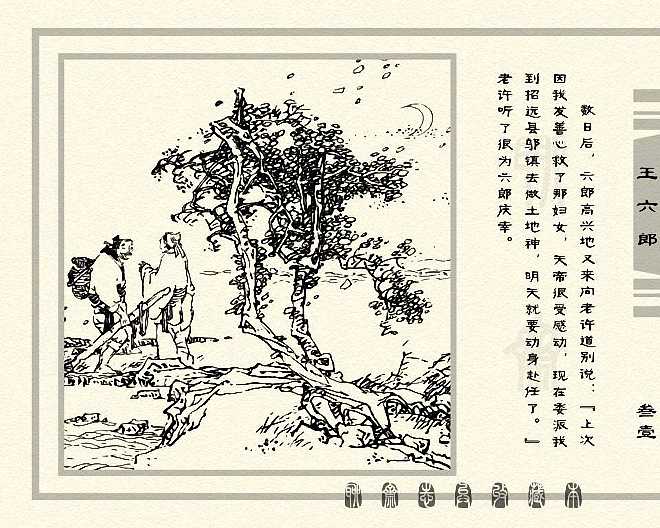 数日后，六郎高兴地又来向老许道别说：『上次
因我发善心救了那妇女，天帝很受感动，现在委派我
到招远县邬镇去做土地神，明天就要动身赴任了。』
老许听了很为六郎庆幸。
王六郎
叁壹